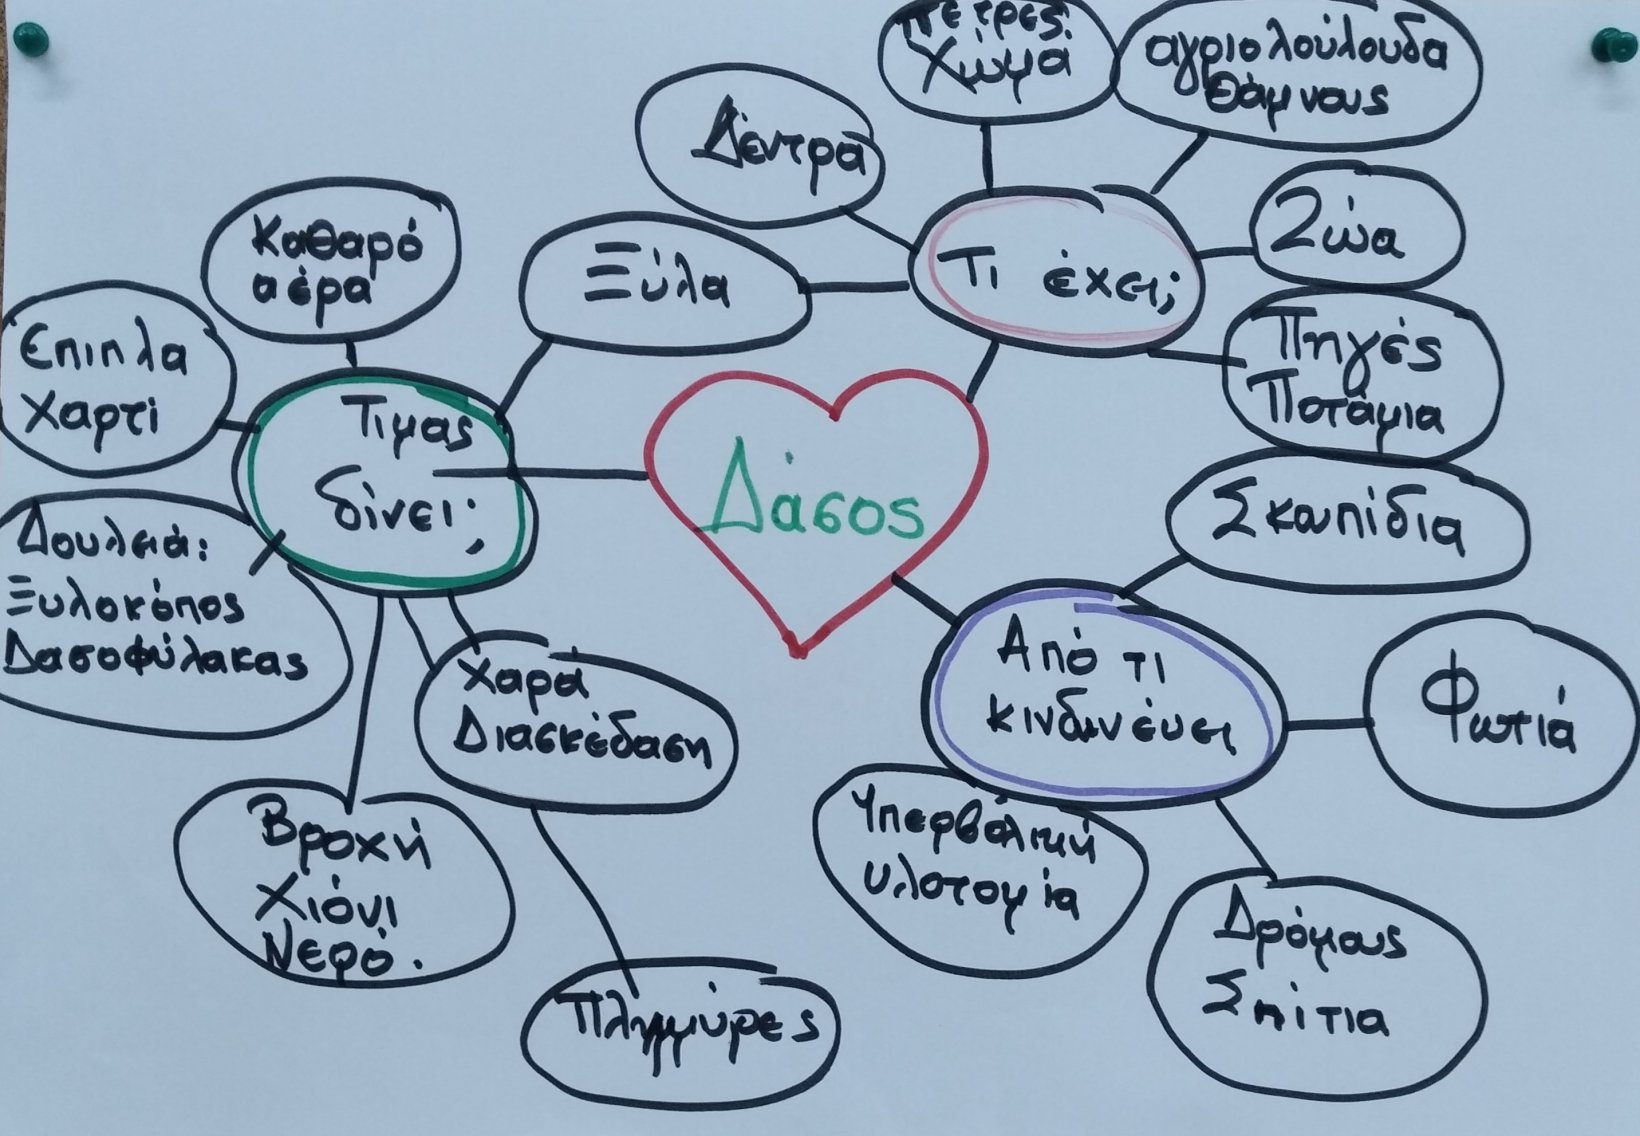 Πέτρες
Χώμα
αγριολούλουδα
θάμνους
Δέντρα
Ζώα
Ξύλα
Τι έχει;
Πηγές
Ποτάμια
Καθαρό
αέρα
Επιπλα
χαρτί
Τιμας
δίνει;
Δάσος
Σκουπίδια
Δουλειά:
Ξυλοκόπος
Δασοφύλακας
Χαρά
Διασκέδαση
Από τι
κινδυνέυει
Φωτιά
Βροχή
Χιόνι
Νερό.
Υπερβολική
υλοτομία
Δρόμους
Σπίτια
Πλημμύρες